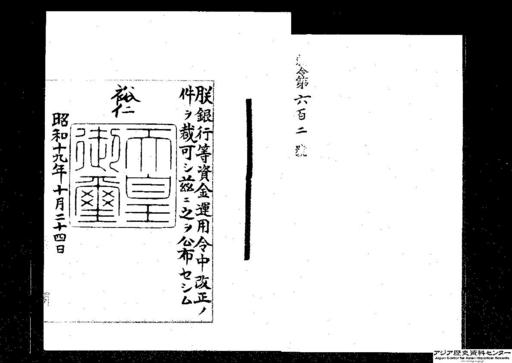 勅令第六百二號
朕銀行等資金運用令中改正ノ
件ヲ裁可シ茲ニ之ヲ公布セシム
裕仁
天皇御璽
昭和十九年十月二十四日
アジア歴史資料センター
Japan Center for Asian Historical Records